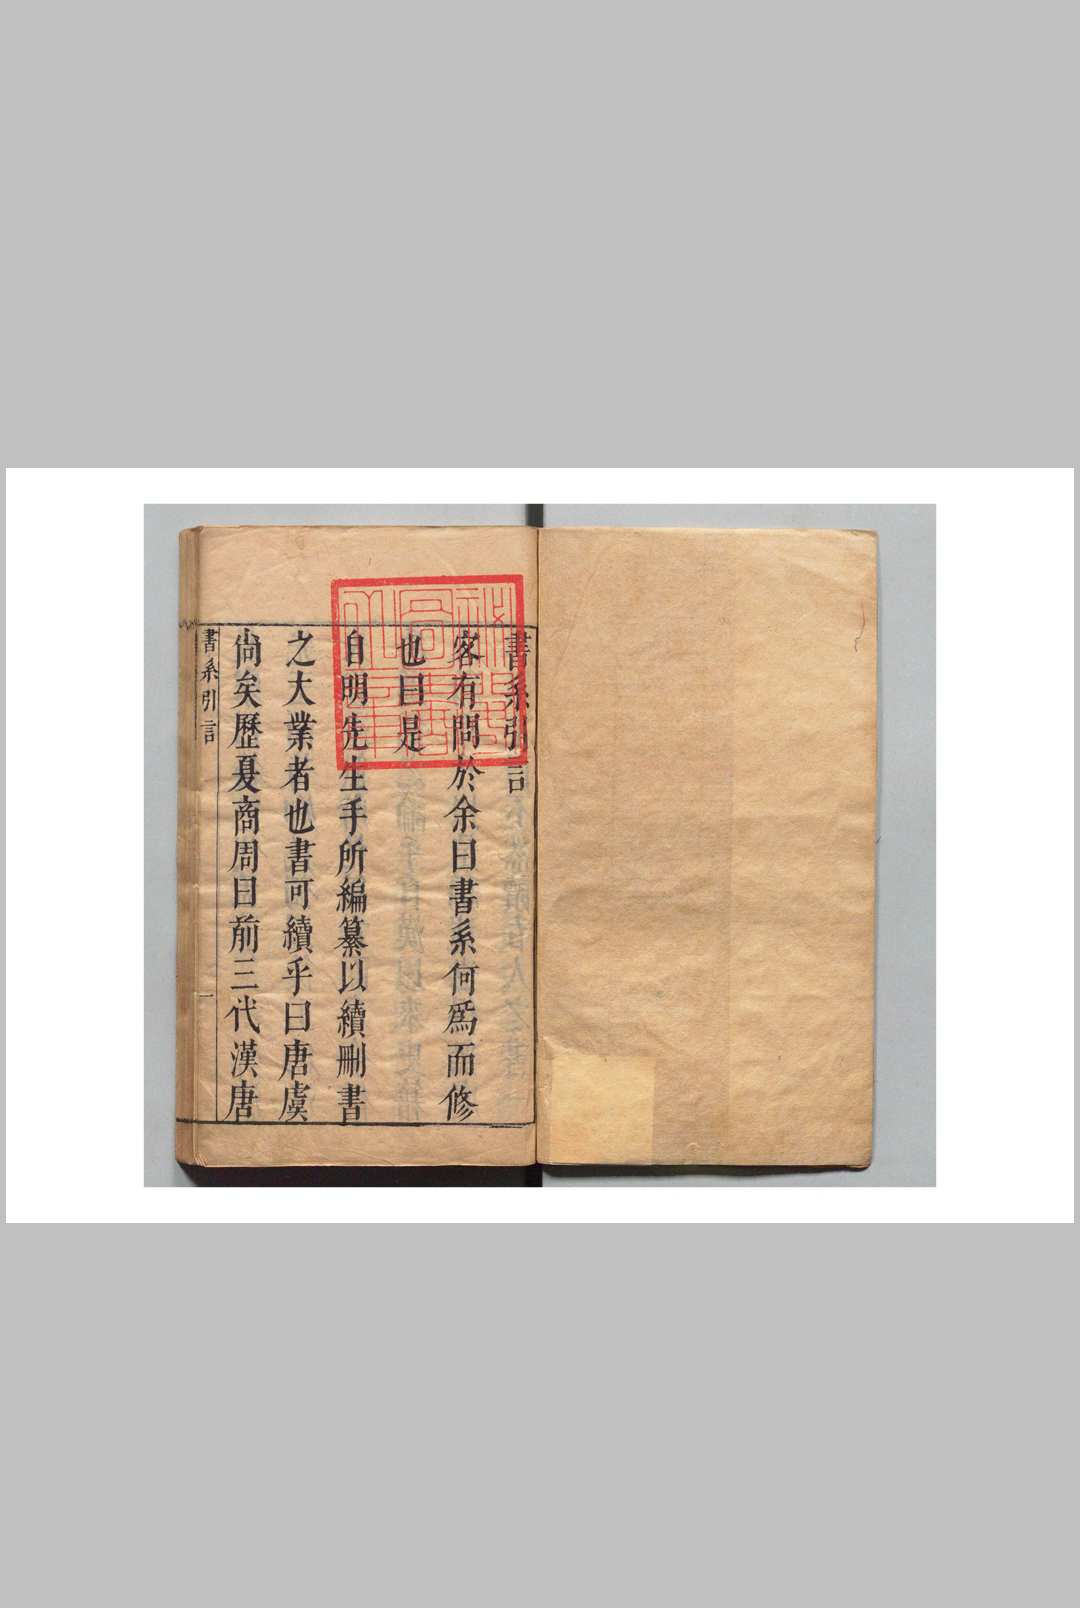 書系引言
客有問於余曰書系何爲而修
也曰是
自明先生手所編纂以續刪書
之大業者也書可續乎曰唐虞
尙矣歷夏商周曰前三代漢唐
書系引言
一